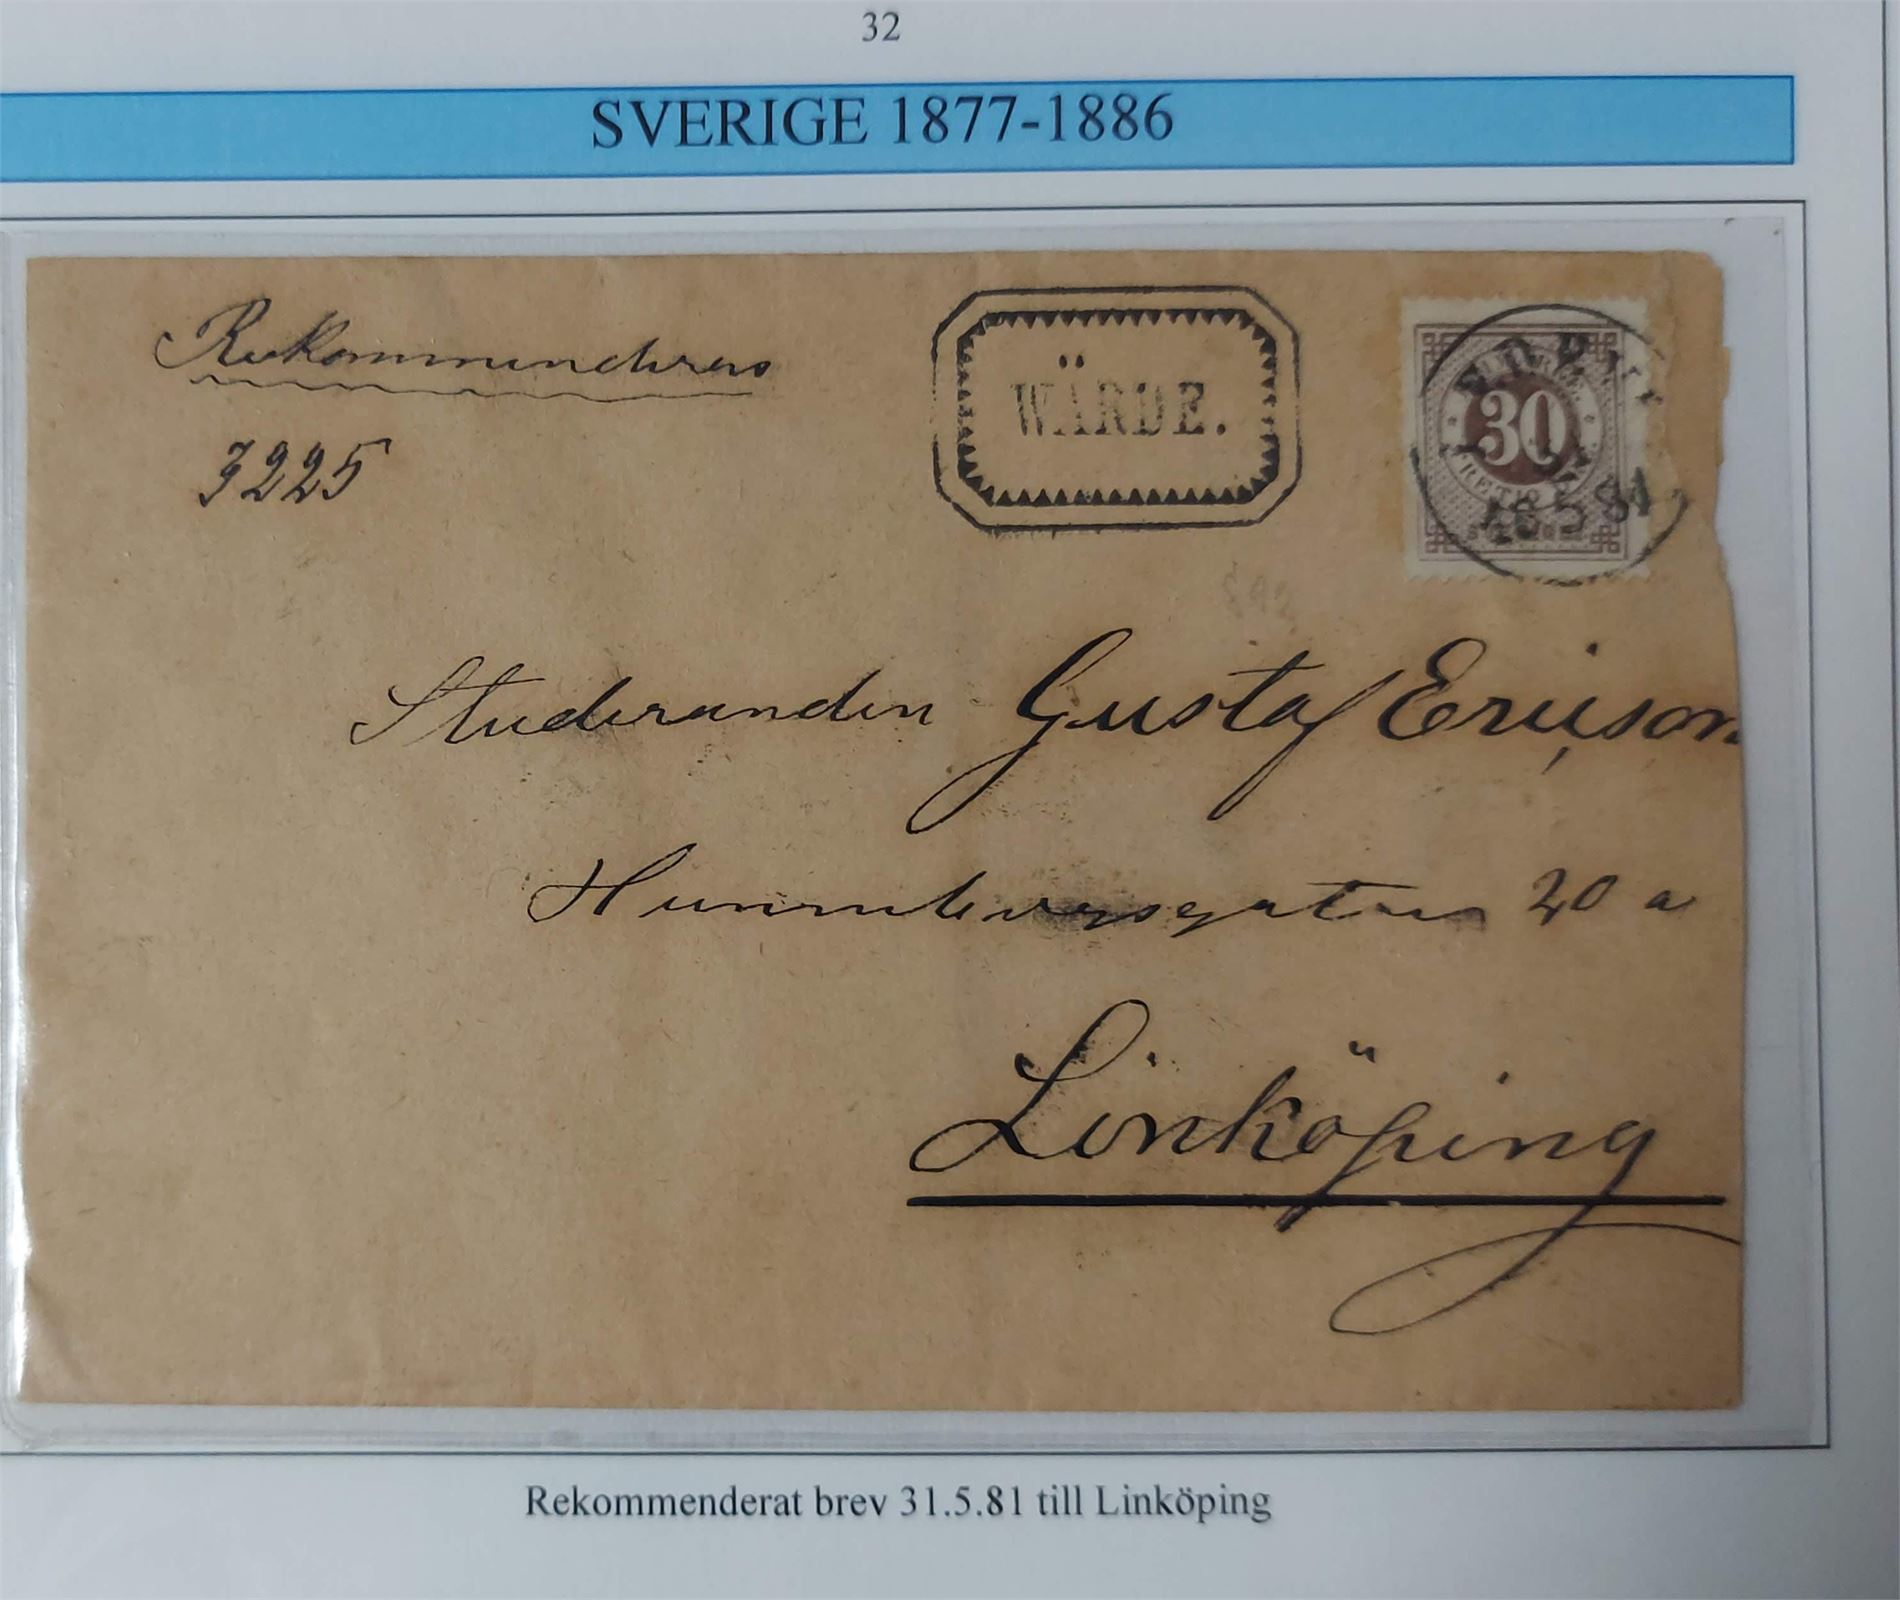 32
SVERIGE 1877-1886
Rekommenderas
3225
WÄRDE.
30
TRETIO
Studeranden Gustaf Ericson
20 a
Linköping
Rekommenderat brev 31.5.81 till Linköping